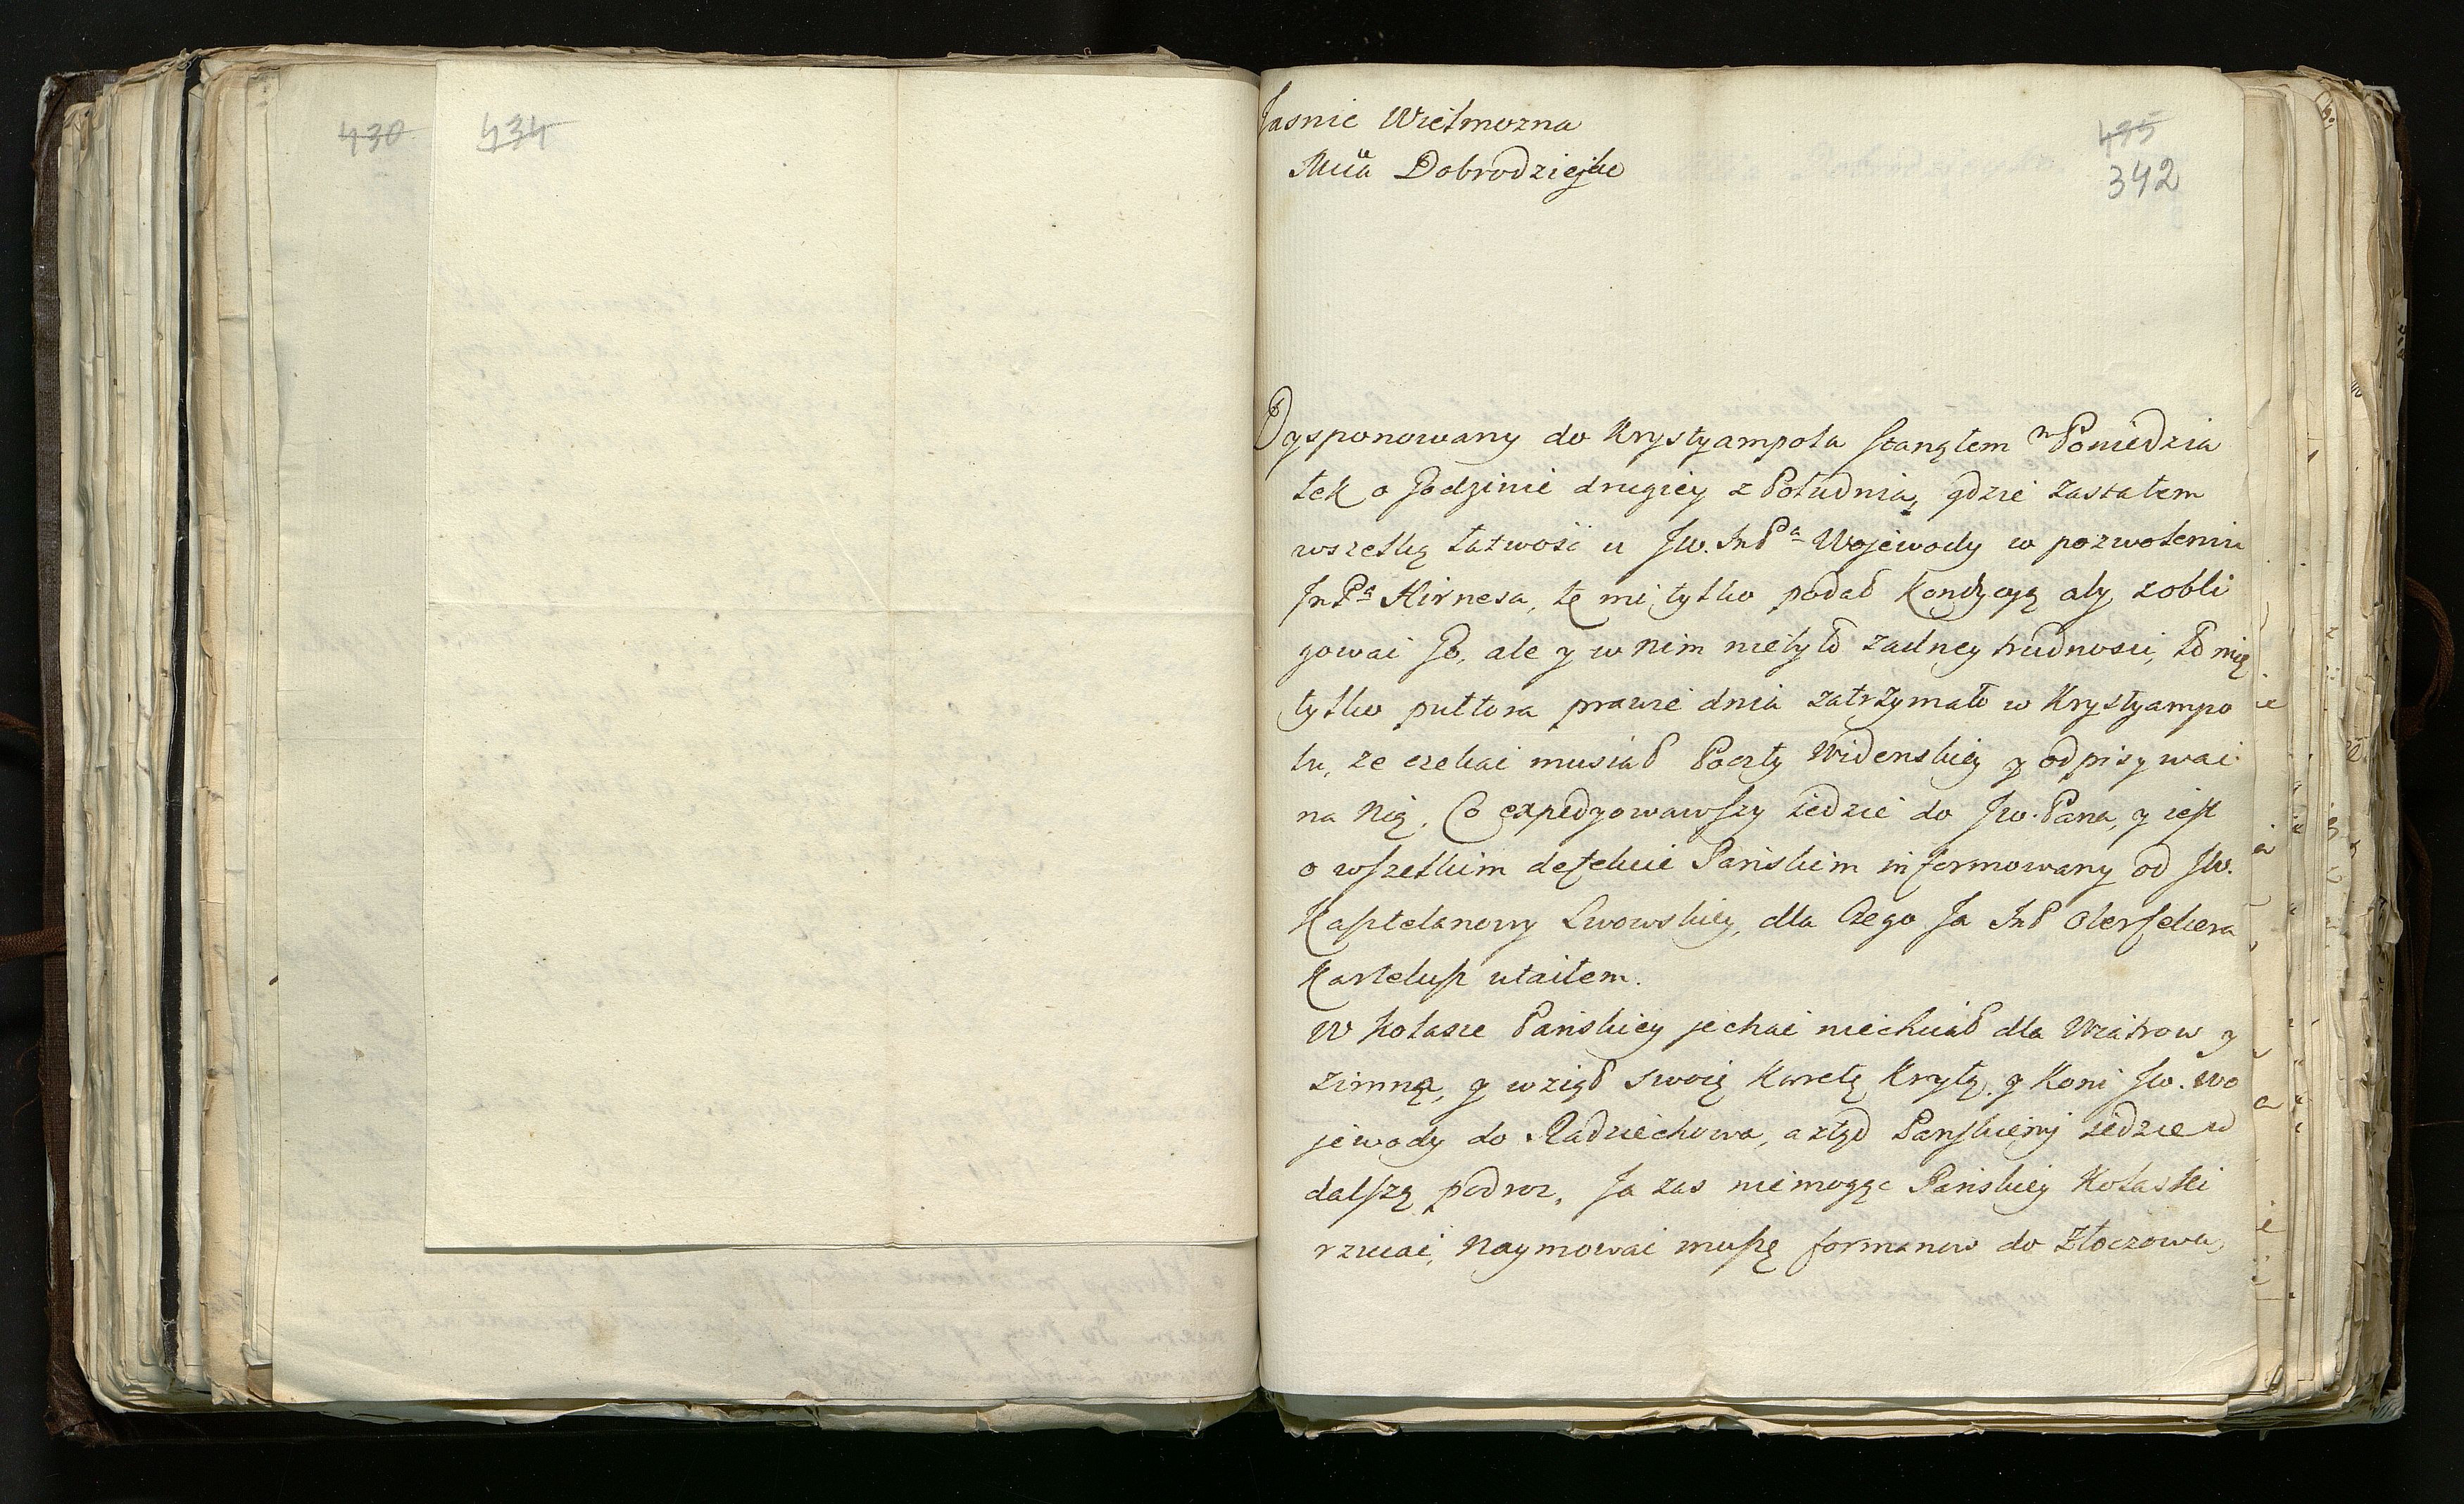 430
434
435
342
Jasnie Wielmozna
Mcia Dobrodziejko
Dysponowany do Krystyampola stanąłem w Poniedzia
łek o Godzinie drugiey z Południa, gdzie zastałem
wszelką łatwość u JW. ImPa Wojewody w pozwoleniu
ImPa Hirnesa, tę mi tylko podał kondycyą aby zobli
gować Go, ale y w nim niebyło zadney trudności, to mię
tylko pułtora prawie dnia zatrzymało w Krystyampo
lu, ze czekać musiał Poczty Widenskiey y odpisywać
na Nię. Co expedyowawszy iedzie do Jw. Pana, y iest
o wszelkim defekcie Pańskim informowany od JW.
Kasztelanowy Lwowskiey, dla Czego Ja ImP
utaiłem.
W kolasce Pańskiey jechać niechciał dla Wiatrow y
zimna, y wziął swoię Karetę Krytą, y Koni Jw. Wo
jewody do Radziechowa, a ztąd Pańskiemi iedzie w
dalszą podroz, Ja zas niemogąc Pańskiey Kolaski
rzucać, Naymować muszę formanow do Złoczowa,